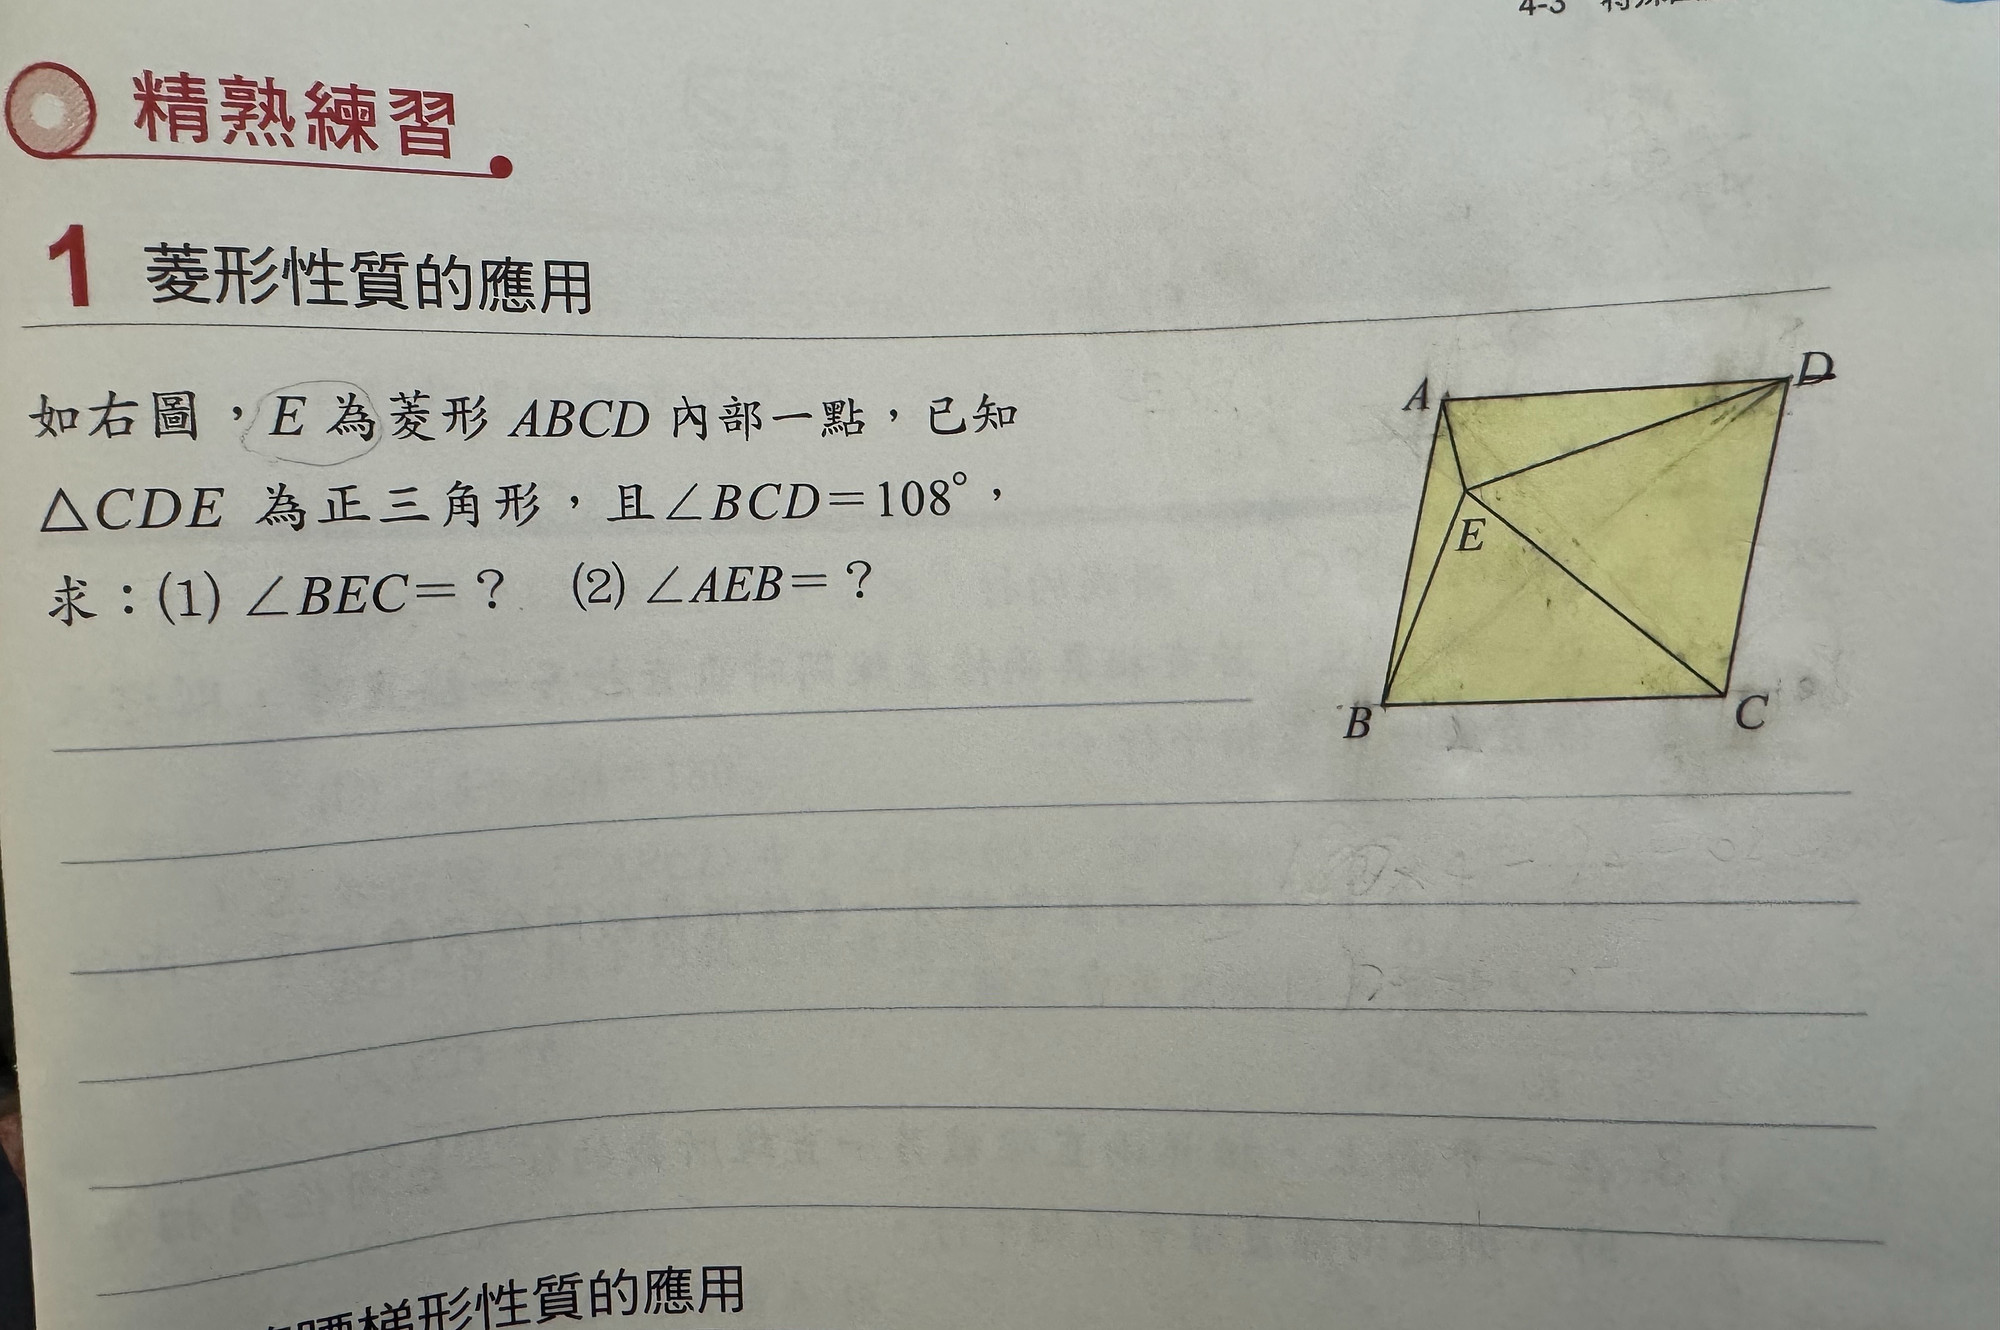 4-3
精熟練習
1 菱形性質的應用
如右圖，E 為菱形 ABCD 內部一點，已知
△CDE 為正三角形，且∠BCD＝108°，
求：(1) ∠BEC＝？ (2) ∠AEB＝？
A
D
E
B
C
腰梯形性質的應用